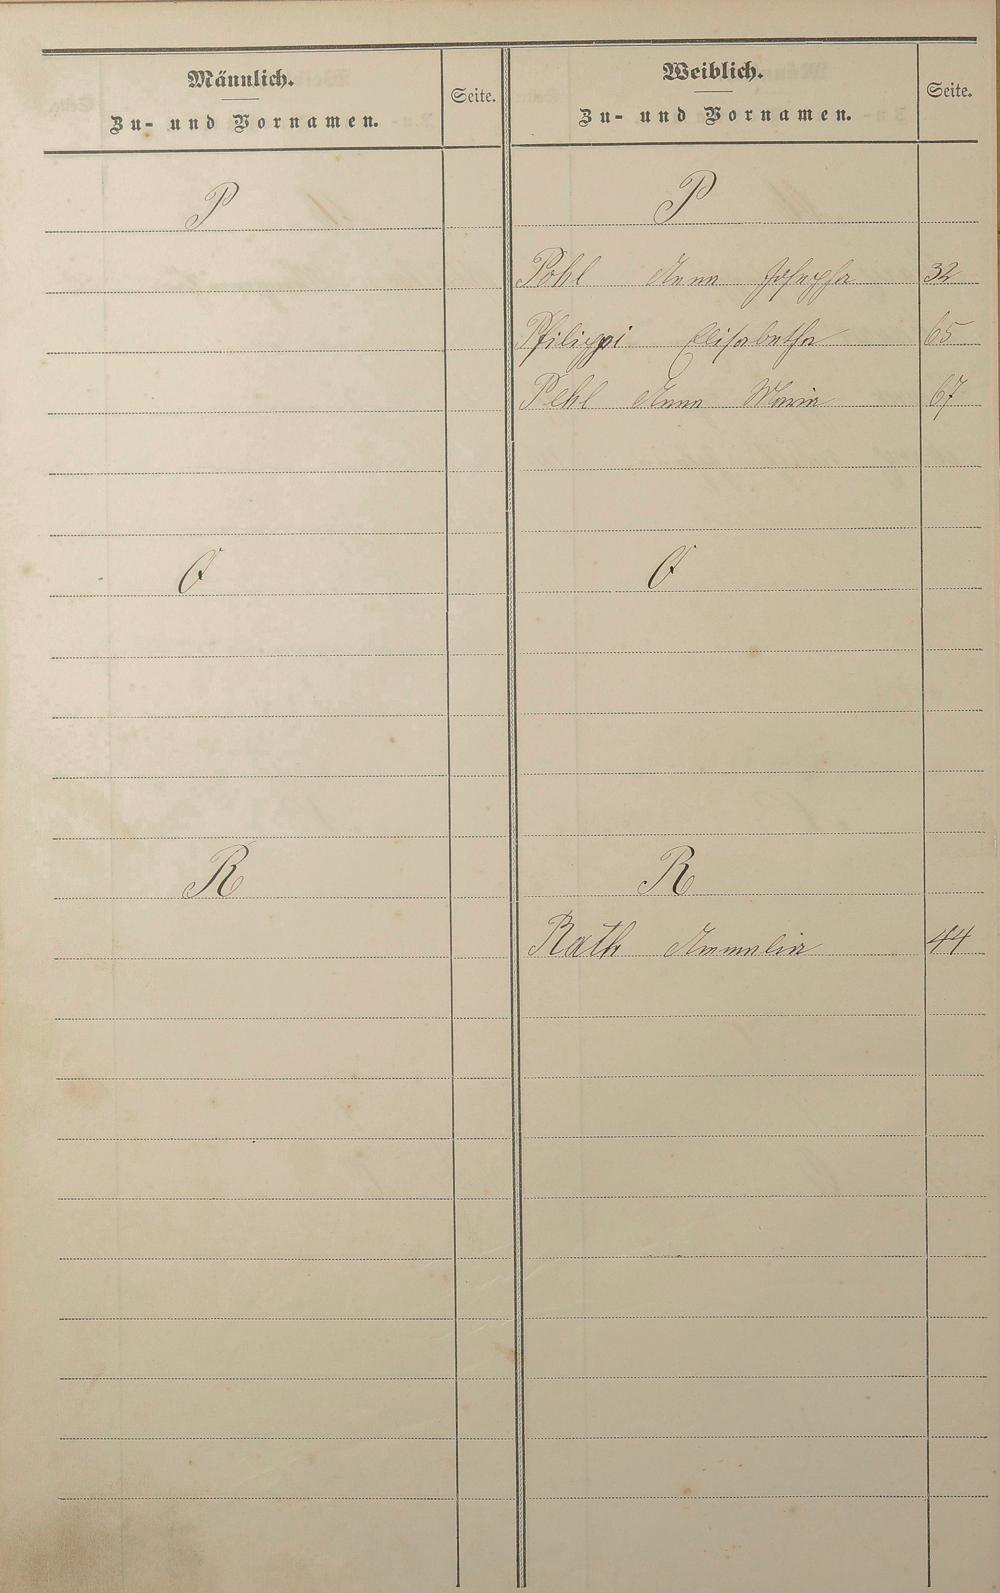 Männlich.
Zu- und Vornamen.
Seite.
Weiblich.
Zu- und Vornamen.
Seite.
P
P
Pohl Anna Josepha 32
Philippi Elisabetha 65
Pehl Anna Maria 67
R
R
Rath Ammalia 44